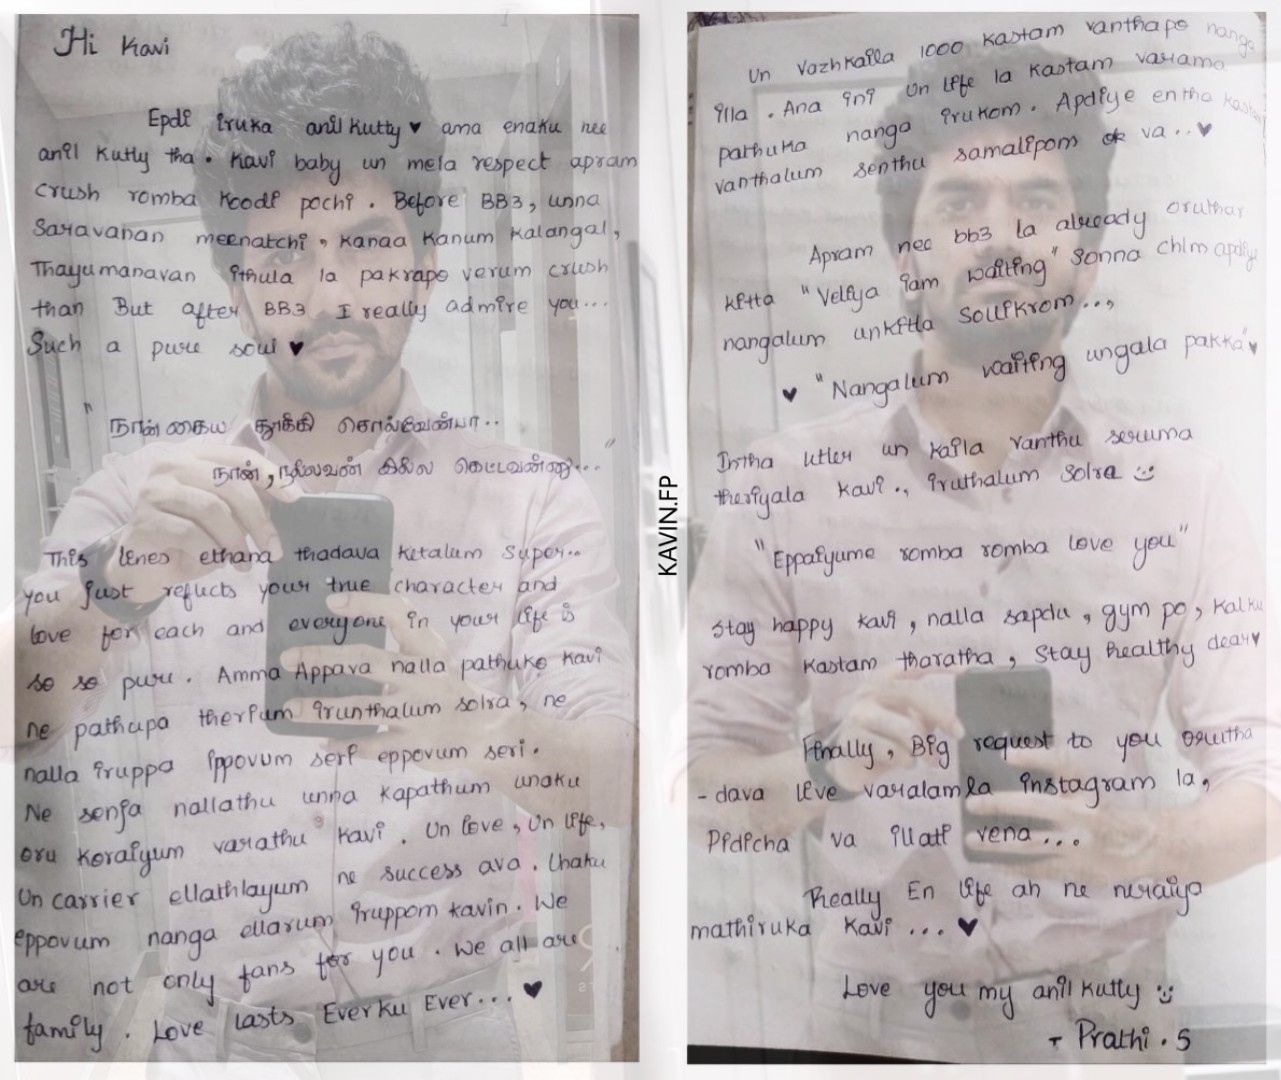 Hi Kavi
Epdi iruka anil kutty ♥ ama enaku nee
anil kutty tha. Kavi baby un mela respect apram
crush romba Koodi pochi. Before BB3, unna
Saravanan meenatchi, Kanaa Kanum Kalangal,
Thayumanavan ithula la pakrapo verum crush
than But after BB3 I really admire you...
Such a pure soul ♥
" நான் கைய தூக்கி சொல்வேன்யா..
நான், நல்லவன் இல்ல கெட்டவன்னு..."
This lines ethana thadava ketalum Super..
you just reflects your true character and
love for each and everyone in your life is
so so pure. Amma Appava nalla pathuko Kavi
ne pathupa therium irunthalum solra, ne
nalla iruppa ippovum seri eppovum seri.
Ne senja nallathu unna kapathum unaku
oru Koraiyum varathu Kavi. Un love, Un life,
Un carrier ellathlayum ne success ava. Unaku
eppovum nanga ellarum iruppom kavin. We
are not only fans for you. We all are
family. Love lasts Everku Ever...♥
KAVIN.FP
Un Vazhkaila 1000 Kastam vanthapo nanga
illa. Ana ini Un life la Kastam varama
pathuka nanga irukom. Apdiye entha kastam
vanthalum senthu samalipom ok va..♥
Apram nee bb3 la already oruthar
kitta "Veliya iam waiting" Sonna chlm apdiye
nangalum unkitta Sollikrom..,
♥ "Nangalum waiting ungala pakka"♥
Intha letter un kaila vanthu seruma
theriyala Kavi., iruthalum Solra
"Eppaiyume romba romba love you"
Stay happy Kavi, nalla sapdu, gym po, Kalku
romba Kastam tharatha, Stay healthy dear♥
Finally, Big request to you orutha
-dava live varalamla instagram la,
Pidicha va illati vena...
Really En life ah ne neraiya
mathiruka Kavi ...♥
Love you my anil kutty
- Prathi.S